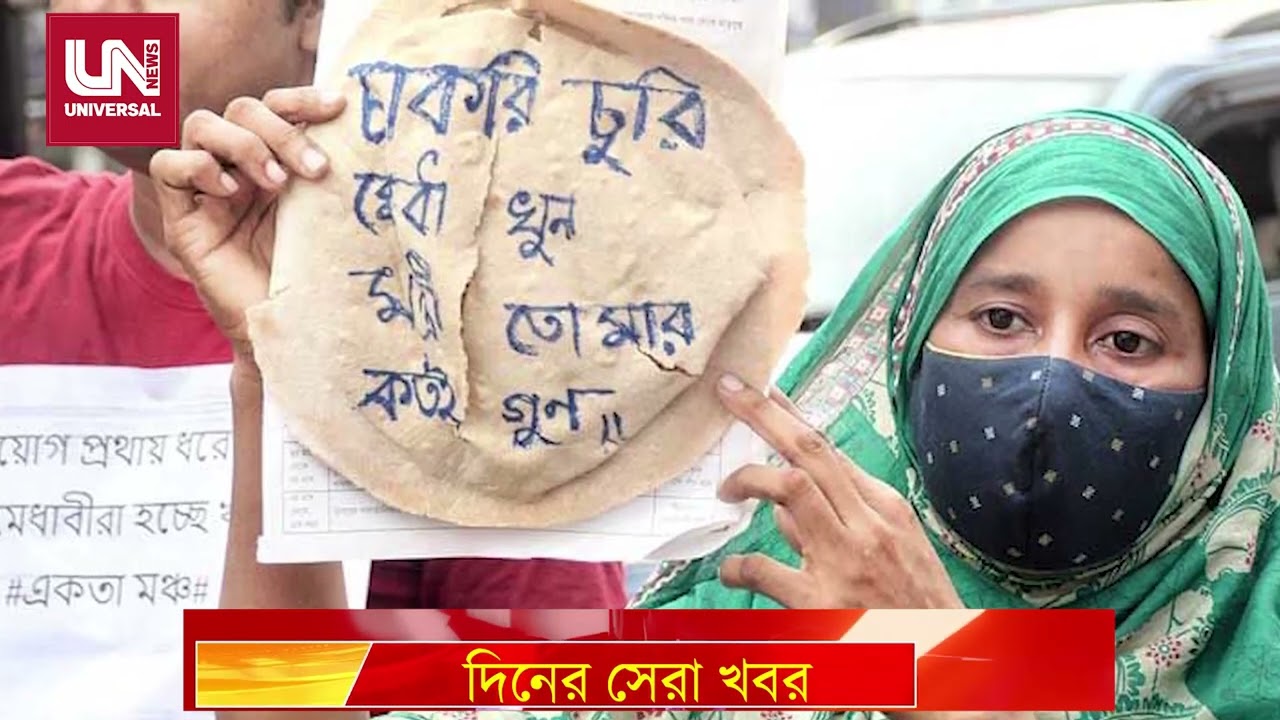 UN NEWS
UNIVERSAL
চাকরি চুরি
মেধা খুন
মন্ত্রী তোমার
কতই গুন !!
য়োগ প্রথায় ধরে
মেধাবীরা হচ্ছে
#একতা মঞ্চ#
দিনের সেরা খবর